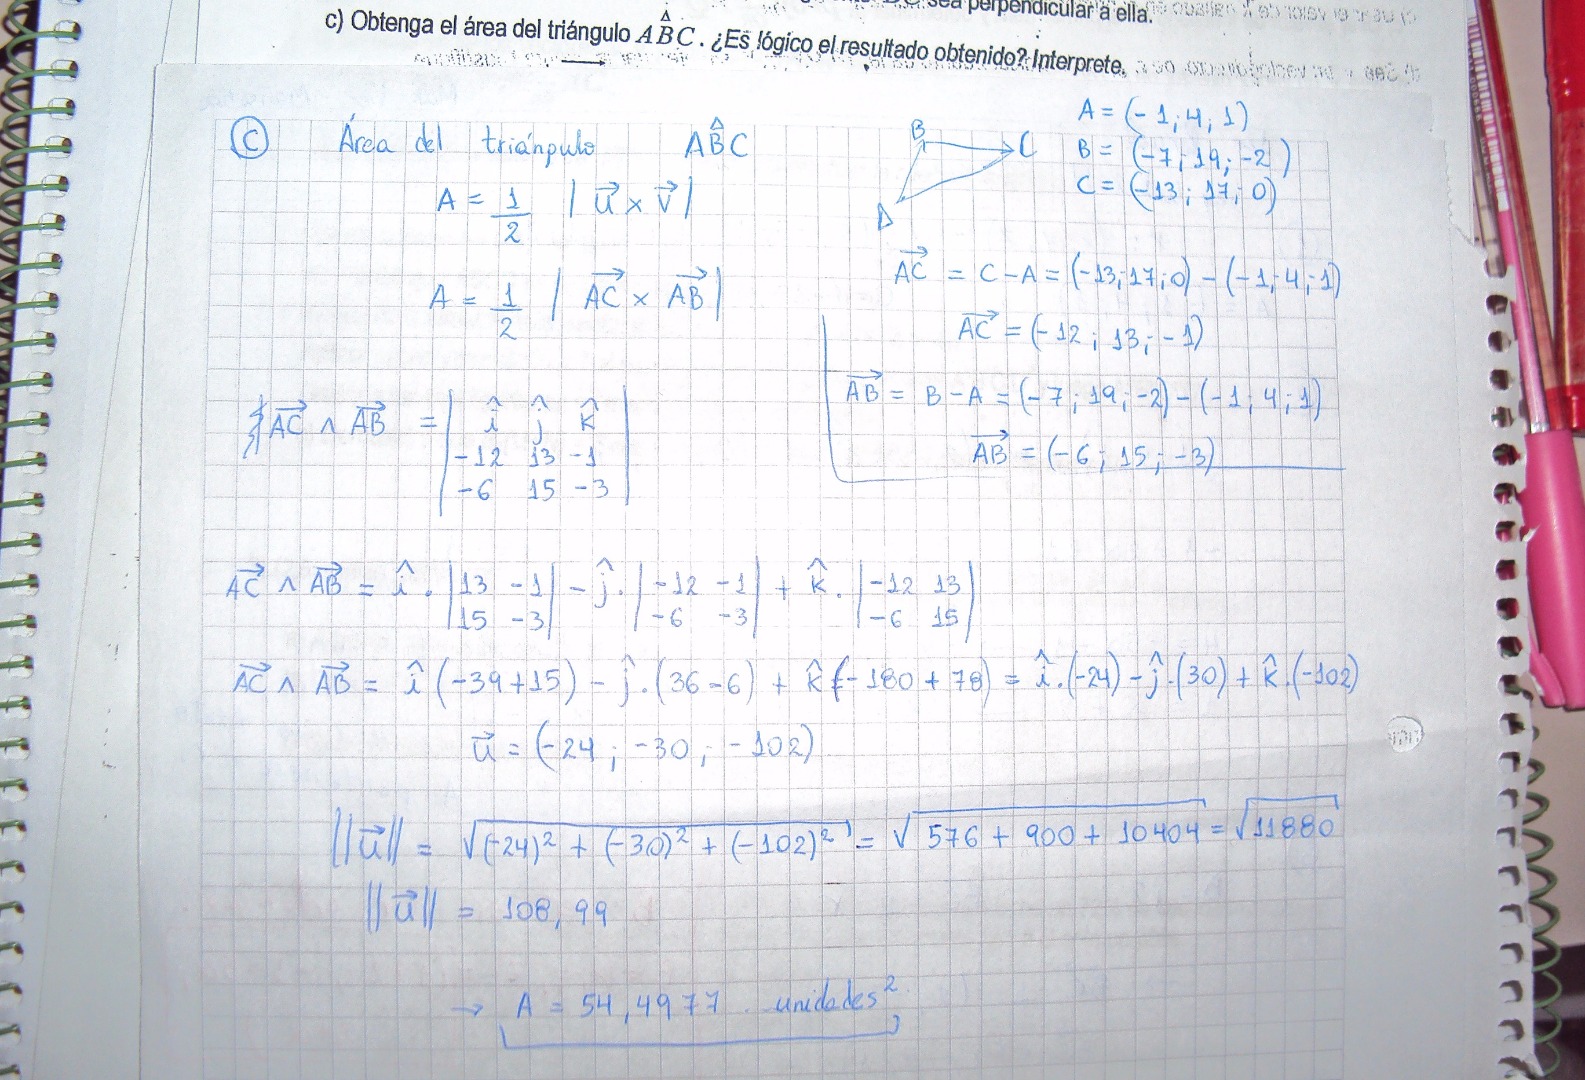 sea perpendicular a ella.
c) Obtenga el área del triángulo ABC. ¿Es lógico el resultado obtenido? Interprete.
C Área del triángulo AB̂C
A = 1/2 |u⃗ × v⃗|
A = 1/2 |AC⃗ × AB⃗|
B
C
A = (-1; 4; 1)
B = (-7; 19; -2)
C = (-13; 17; 0)
AC⃗ = C - A = (-13; 17; 0) - (-1; 4; 1)
AC⃗ = (-12; 13; -1)
AB⃗ = B - A = (-7; 19; -2) - (-1; 4; 1)
AB⃗ = (-6; 15; -3)
AC⃗ ∧ AB⃗ = | î ĵ k̂ |
| -12 13 -1 |
| -6 15 -3 |
AC⃗ ∧ AB⃗ = î . |13 -1| - ĵ . |-12 -1| + k̂ . |-12 13|
|15 -3| |-6 -3| |-6 15|
AC⃗ ∧ AB⃗ = î (-39+15) - ĵ . (36-6) + k̂ (-180+78) = î . (-24) - ĵ . (30) + k̂ . (-102)
u⃗ = (-24; -30; -102)
||u⃗|| = √(-24)² + (-30)² + (-102)² = √576 + 900 + 10404 = √11880
||u⃗|| = 108,99
→ A = 54,4977 unidades²